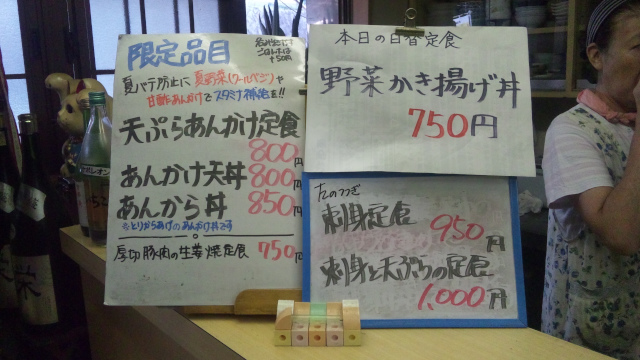 限定品目
夏バテ防止に夏野菜(クールベジ)や
甘酢あんかけでスタミナ補給を!!
天ぷらあんかけ定食
800円
あんかけ天丼 800円
あんから丼 850円
※とりからあげのあんかけ丼です
厚切豚肉の生姜焼定食 750円
本日の日替定食
野菜かき揚げ丼
750円
たのつぎ
刺身定食 950円
刺身と天ぷらの定食
1,000円